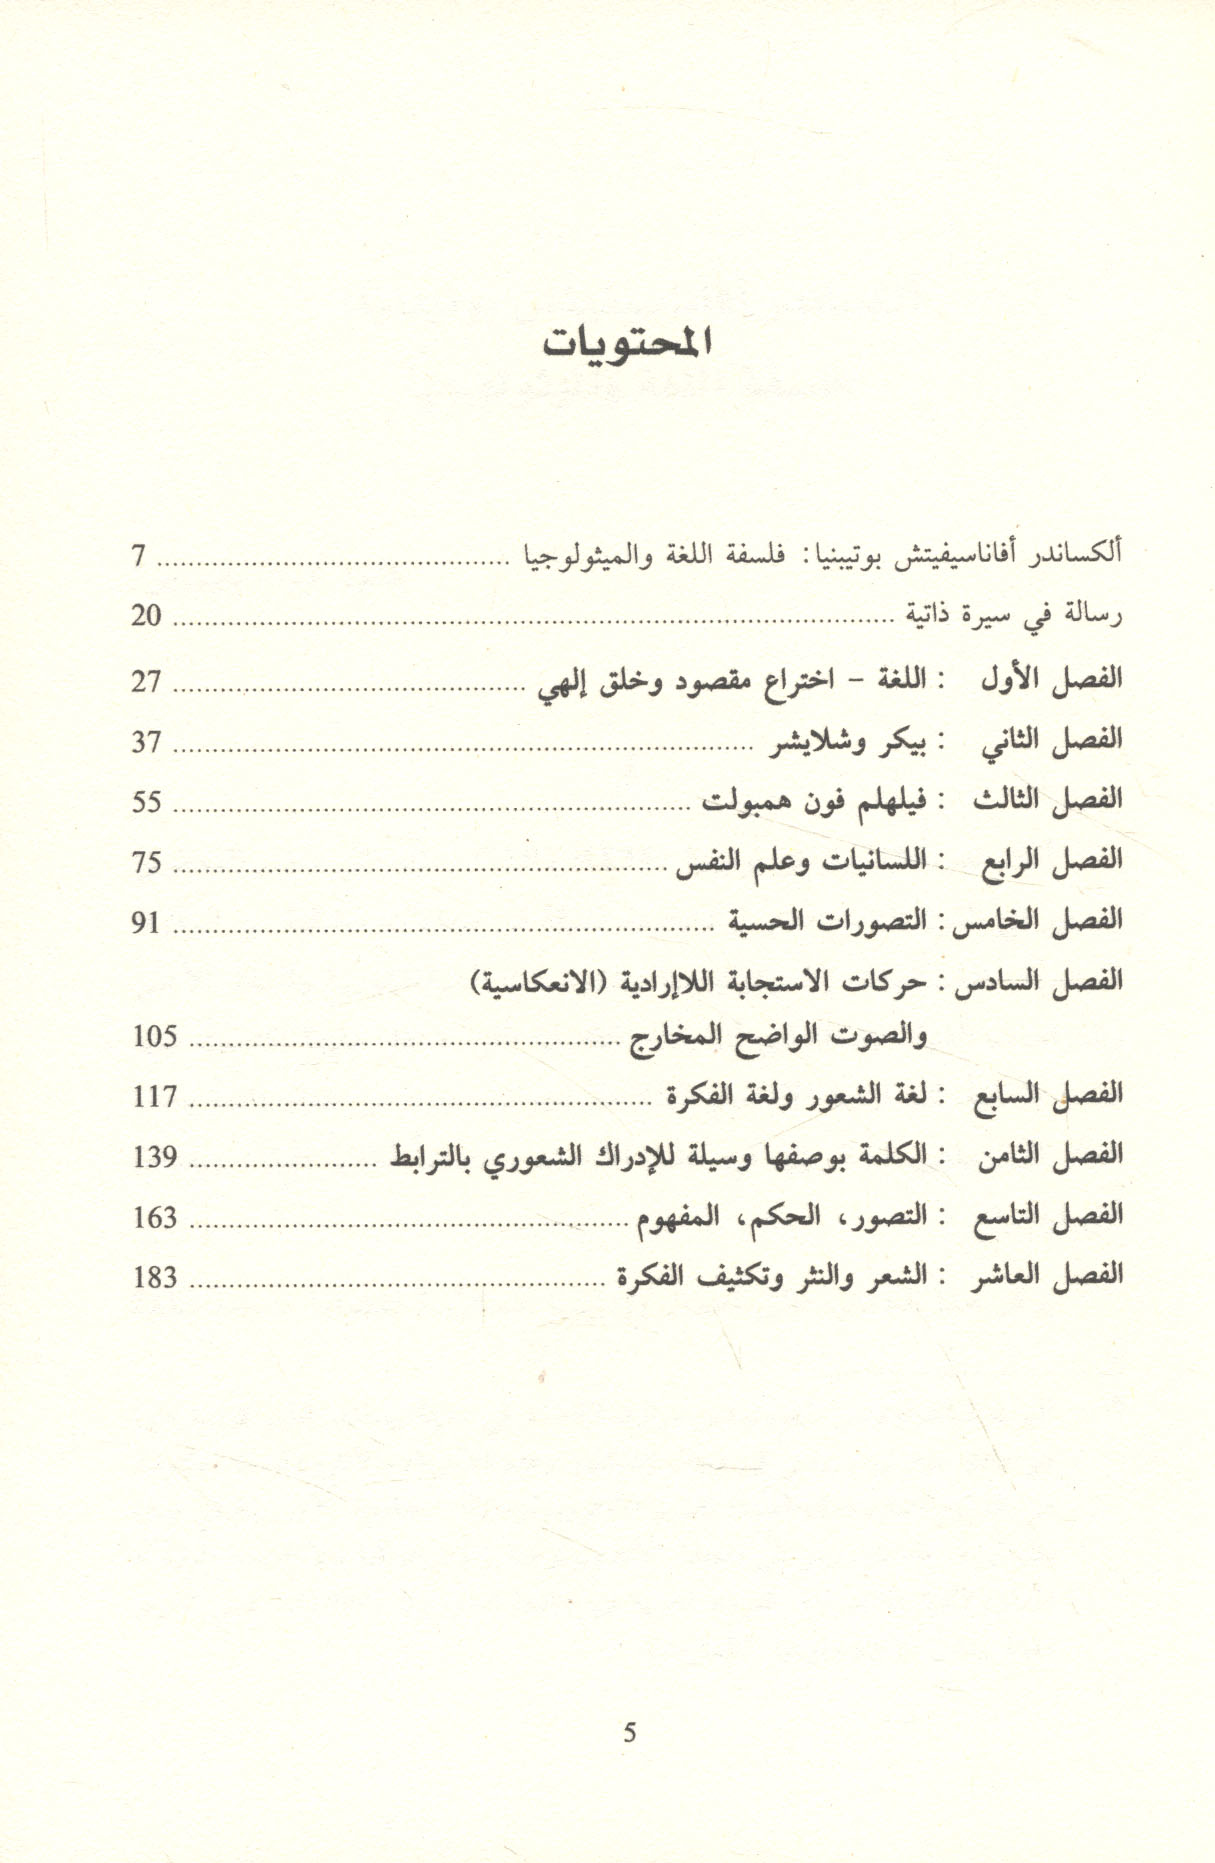 المحتويات
ألكساندر أفاناسيفيتش بوتيبنيا: فلسفة اللغة والميثولوجيا ........ 7
رسالة في سيرة ذاتية ........ 20
الفصل الأول : اللغة - اختراع مقصود وخلق إلهي ........ 27
الفصل الثاني : بيكر وشلايشر ........ 37
الفصل الثالث : فيلهلم فون همبولت ........ 55
الفصل الرابع : اللسانيات وعلم النفس ........ 75
الفصل الخامس : التصورات الحسية ........ 91
الفصل السادس : حركات الاستجابة اللاإرادية (الانعكاسية)
والصوت الواضح المخارج ........ 105
الفصل السابع : لغة الشعور ولغة الفكرة ........ 117
الفصل الثامن : الكلمة بوصفها وسيلة للإدراك الشعوري بالترابط ........ 139
الفصل التاسع : التصور، الحكم، المفهوم ........ 163
الفصل العاشر : الشعر والنثر وتكثيف الفكرة ........ 183
5